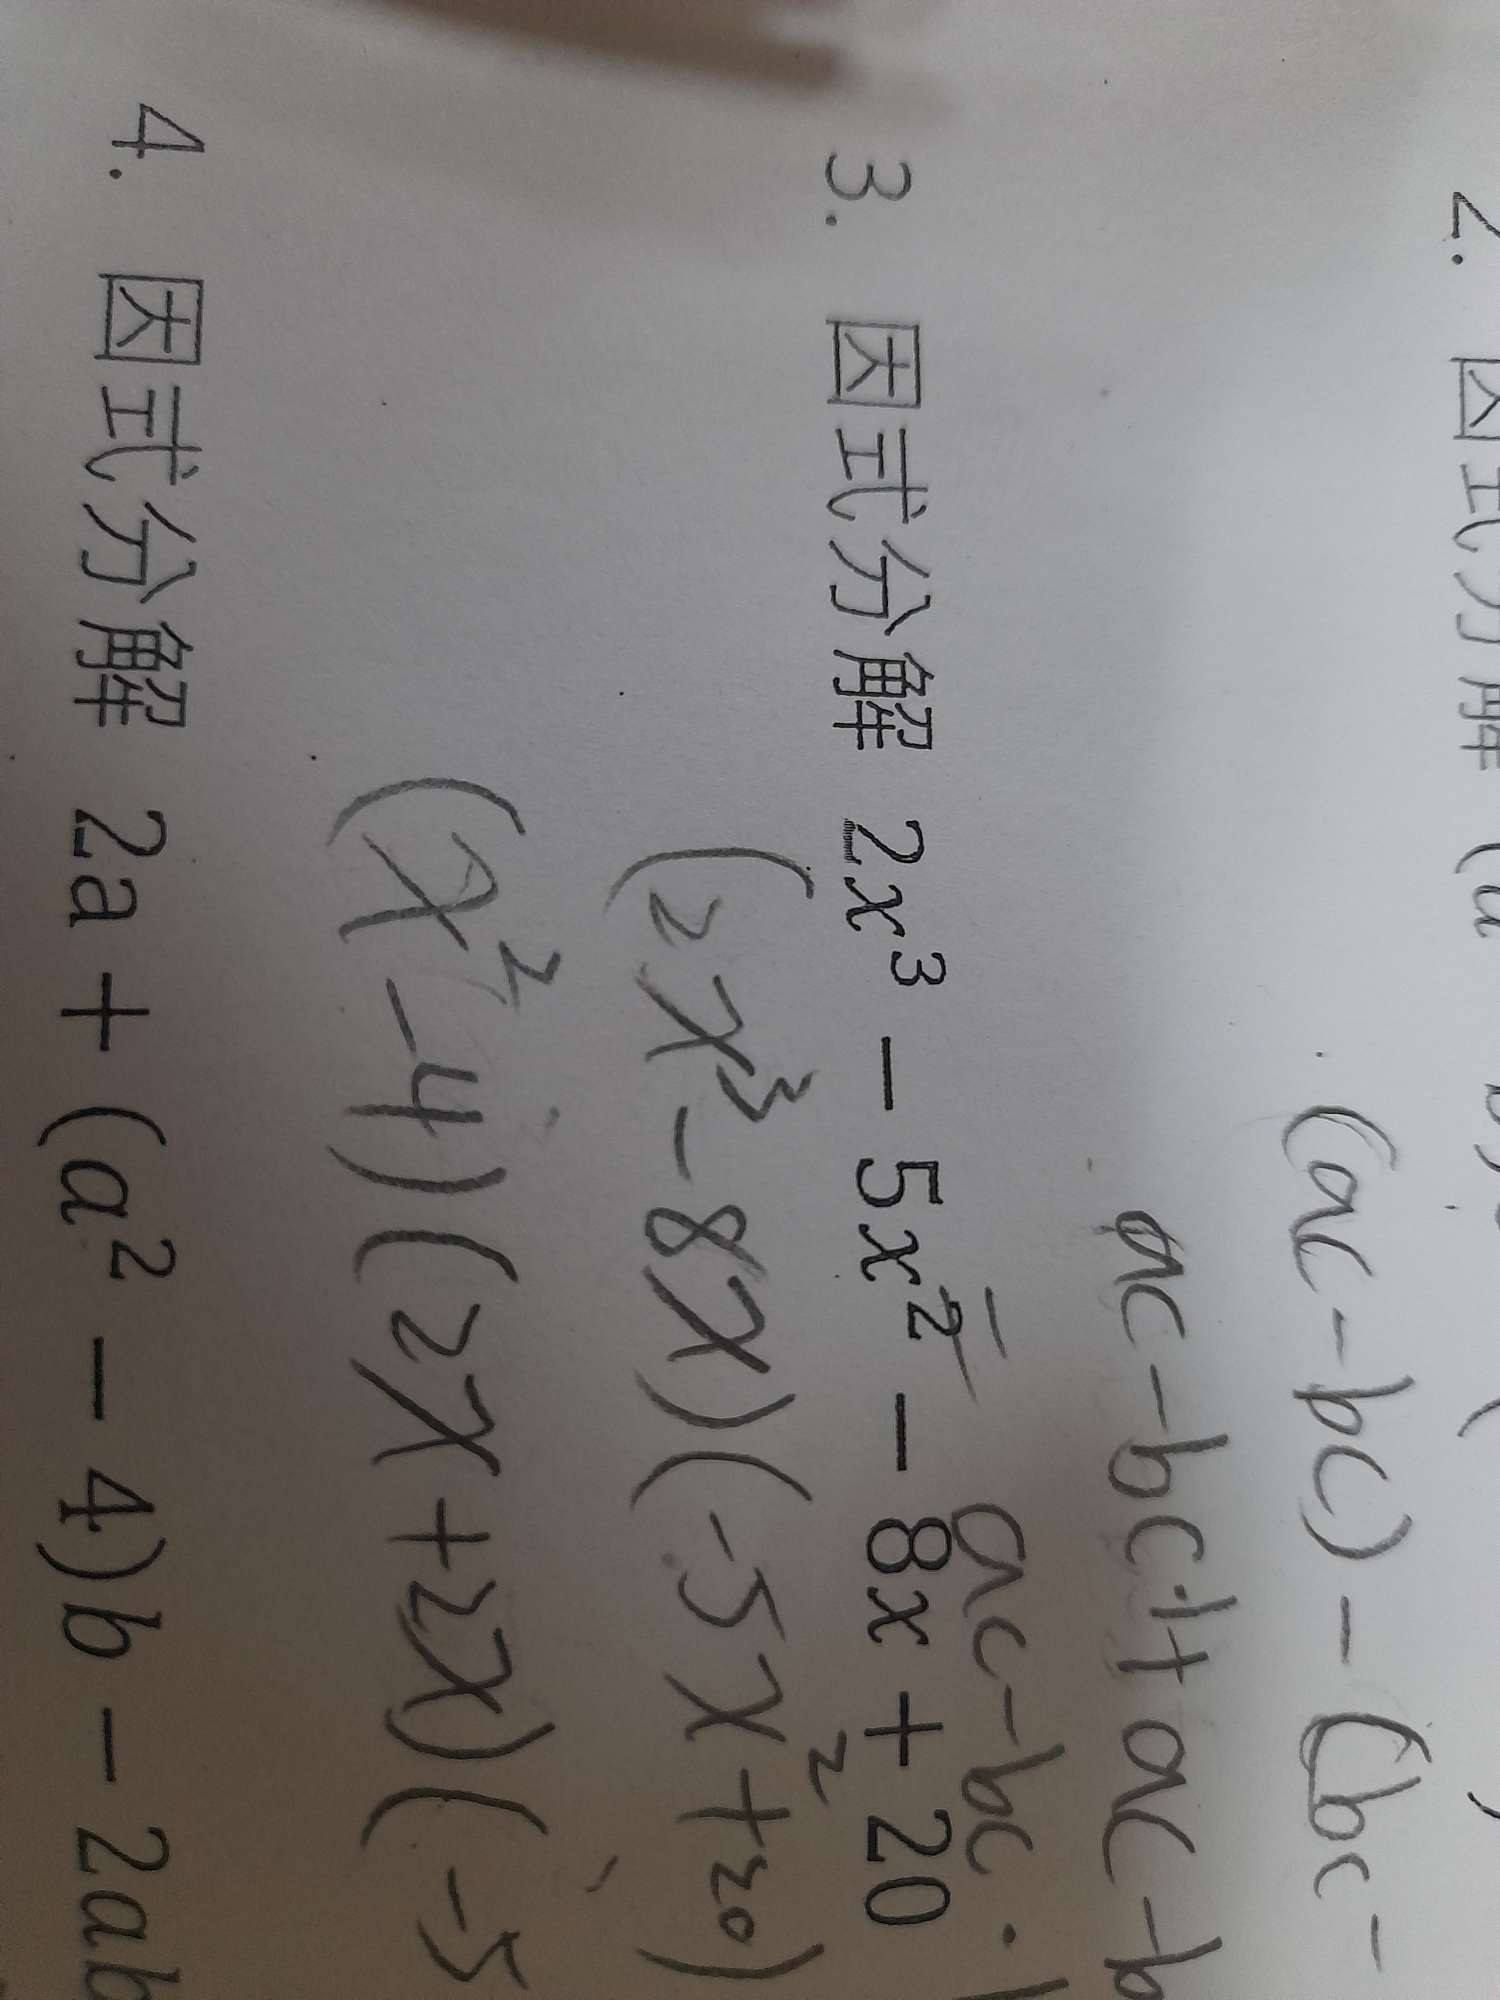 2. 因式分解 (a
(ac-bc)-(bc-
ac-bc+1+ac-b
ac-bc·1
3. 因式分解 2x³ − 5x² − 8x + 20
(2x³-8x)(-5x²+20)
(x²-4)(2x+2x)(-5
4. 因式分解 2a + (a² − 4)b − 2ab